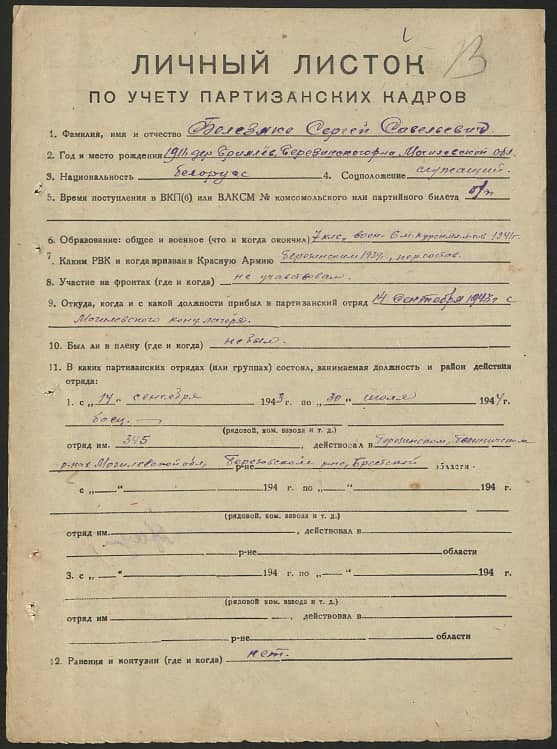 В
ЛИЧНЫЙ ЛИСТОК
ПО УЧЕТУ ПАРТИЗАНСКИХ КАДРОВ
1. Фамилия, имя и отчество Болезяко Сергей Савельевич
2. Год и место рождения 1911 дер. Березинского р-на Могилевской обл.
3. Национальность белорус 4. Соцположение служащий.
5. Время поступления в ВКП(б) или ВЛКСМ № комсомольского или партийного билета б/п
6. Образование: общее и военное (что и когда окончил) 7 кл., воен. 1941 г.
7. Каким РВК и когда призван в Красную Армию Березинским
8. Участие на фронтах (где и когда) не участвовал.
9. Откуда, когда и с какой должности прибыл в партизанский отряд 14 сентября 1943 г с
Могилевского конц. лагеря.
10. Был ли в плену (где и когда) не был.
11. В каких партизанских отрядах (или группах) состоял, занимаемая должность и район действия
отряда:
1. с „14“ сентября 1943 г. по „30“ июля 1944 г.
боец.
(рядовой, ком. взвода и т. д.)
отряд им. 345, действовал в Березинском,
р-нах Могилевской обл, Березовском р-не, Брестской области
с „—“ 194 г. по „—“ 194 г.
(рядовой, ком. взвода и т. д.)
отряд им. , действовал в
р-не области
3. с „—“ 194 г. по „—“ 194 г.
(рядовой, ком. взвода и т. д.)
отряд им , действовал в
р-не области
12. Ранения и контузии (где и когда) нет.